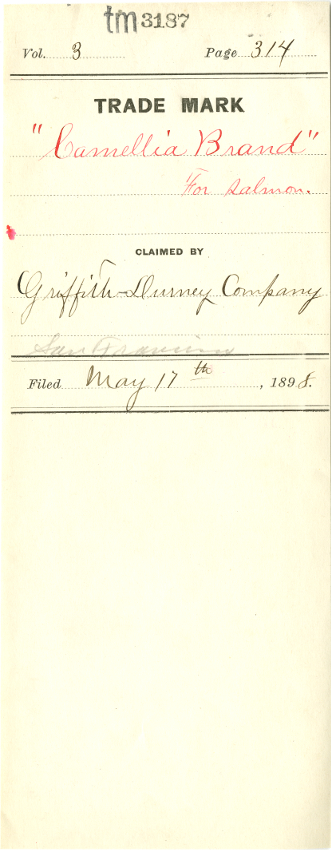 tm3187
Vol. 3 Page 314
TRADE MARK
"Camellia Brand"
For Salmon.
CLAIMED BY
Griffith-Durney Company
San Francisco
Filed May 17th, 1898.